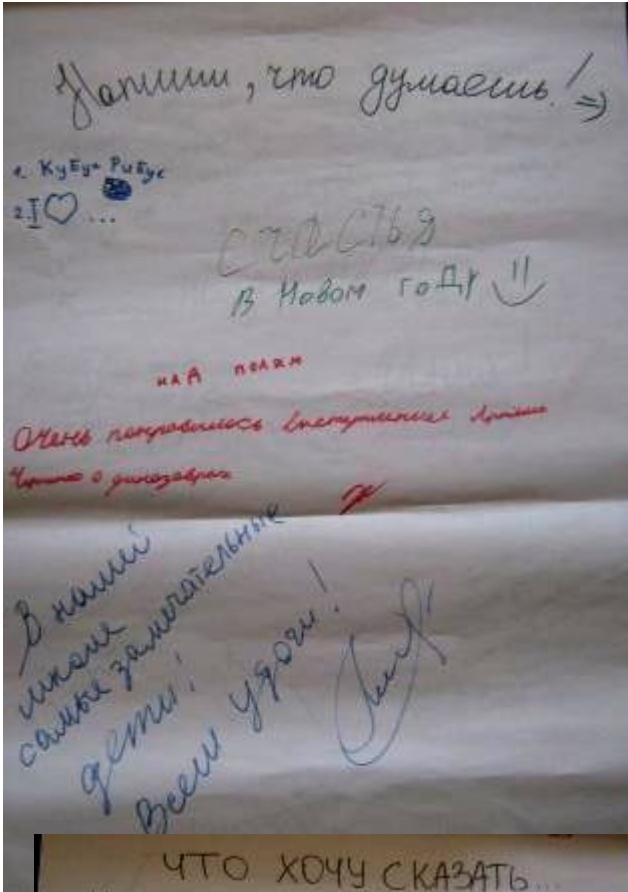 Напиши, что думаешь! =)
1. Кубук Рибус
2. I ♡ ...
СЧАСТЬЯ
В Новом году
над полем
Очень понравилось выступление Артёма
о динозаврах
В нашей
школе
самые замечательные
дети!
Всем удачи!
ЧТО ХОЧУ СКАЗАТЬ...